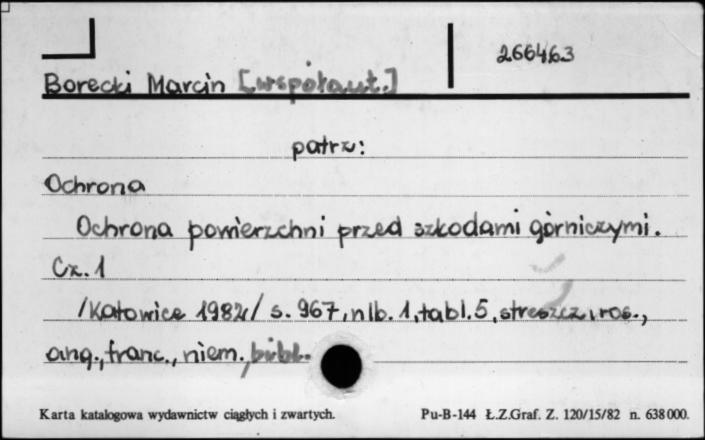 266463
Borecki Marcin [współaut.]
patrz:
Ochrona
Ochrona powierzchni przed szkodami górniczymi.
Cz. 1
/Katowice 1982/ s. 967, nlb. 1, tabl. 5, streszcz. ros.,
ang., franc., niem., bibl.
Karta katalogowa wydawnictw ciągłych i zwartych.
Pu-B-144 Ł.Z.Graf. Z. 120/15/82 n. 638000.